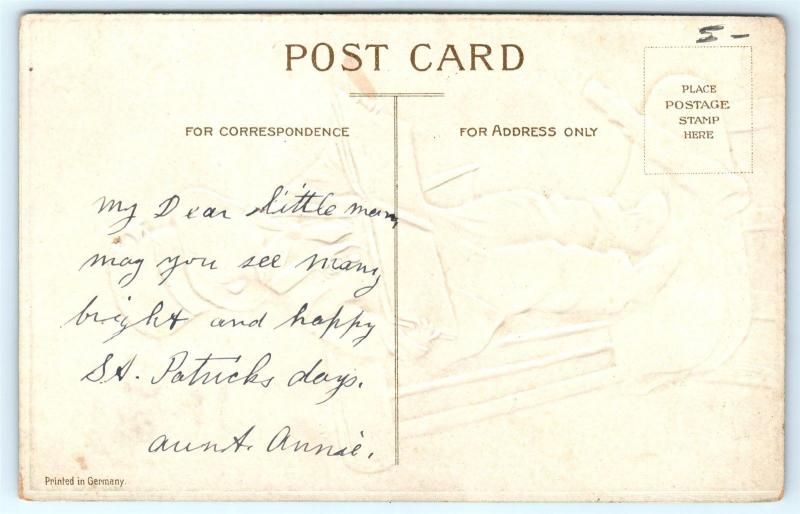 5-
POST CARD
PLACE
POSTAGE
STAMP
HERE
FOR CORRESPONDENCE
FOR ADDRESS ONLY
My Dear little man,
may you see many
bright and happy
St. Patricks days.
aunt. Annie.
Printed in Germany.